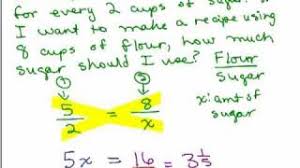 for every 2 cups of sugar. If
I want to make a recipe using
8 cups of flour, how much
sugar should I use? Flour
Sugar
① ②
5 = 8
2 x
x: amt of
sugar
5x = 16 = 3 1/5